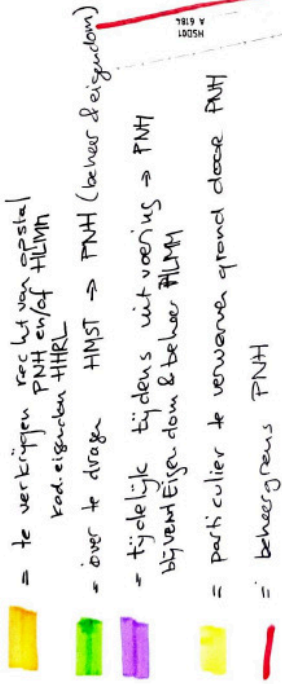 = te verkrijgen recht van opstal
PNH en/of HLMM
kad. eigendom HHRL
= over te dragen HMST → PNH (beheer & eigendom)
= tijdelijk tijdens uitvoering → PNH
blijvend Eigendom & beheer HLMM
= particulier te verwerven grond door PNH
= beheergrens PNH
HSD01
A 6184